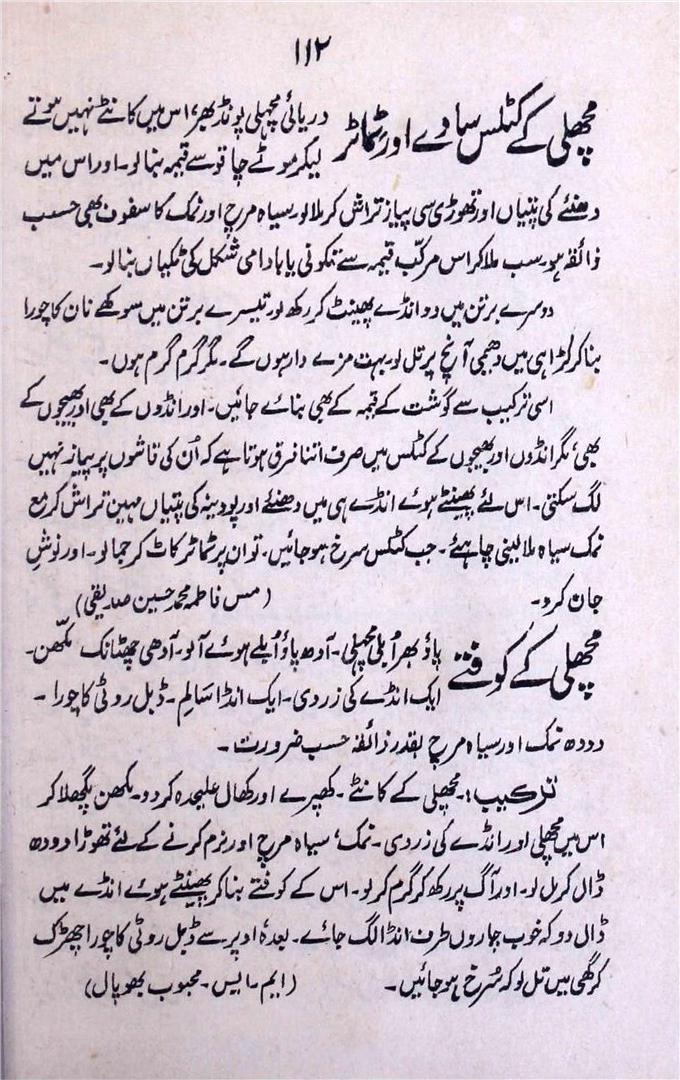 ۱۱۲
مچھلی کے کٹلس ساوے اور ٹماٹر
دریائی مچھلی پونڈ بھر، اس میں کانٹے نہیں ہوتے
لیکر موٹے چاقو سے قیمہ بنالو۔ اور اس میں
دھنئے کی پتیاں اور تھوڑی سی پیاز تراش کر ملالو۔ سیاہ مرچ اور نمک کا سفوف بھی حسب
ذائقہ ہو۔ سب ملاکر اس مرکّب قیمہ سے تکونی یا بادامی شکل کی ٹکیاں بنالو۔
دوسرے برتن میں دو انڈے پھینٹ کر رکھ لو۔ تیسرے برتن میں سوکھے نان کا چورا
بناکر کڑاہی میں دھیمی آنچ پر تل لو۔ بہت مزے دار ہوں گے۔ مگر گرم گرم ہوں۔
اسی ترکیب سے گوشت کے قیمہ کے بھی بنائے جائیں۔ اور انڈوں کے بھی اور بھیجوں کے
بھی، مگر انڈوں اور بھیجوں کے کٹلس میں صرف اتنا فرق ہوتا ہے کہ اُن کی قاشوں پر پیاز نہیں
لگ سکتی۔ اس لئے پھینٹے ہوئے انڈے ہی میں دھنئے اور پودینہ کی پتیاں مہین تراش کر مع
نمک سیاہ ملا لینی چاہئے۔ جب کٹلس سرخ ہوجائیں۔ تو ان پر ٹماٹر کاٹ کر جمالو۔ اور نوشِ
جان کرو۔ (مس فاطمہ محمد حسین صدیقی)
مچھلی کے کوفتے
پاؤ بھر اُبلی مچھلی۔ آدھ پاؤ اُبلے ہوئے آلو۔ آدھی چھٹانک مکّھن۔
ایک انڈے کی زردی۔ ایک انڈا سالم۔ ڈبل روٹی کا چورا۔
دودھ نمک اور سیاہ مرچ بقدر ذائقہ حسب ضرورت۔
ترکیب:۔ مچھلی کے کانٹے۔ کھپرے اور کھال علیحدہ کردو۔ مکھن پگھلا کر
اس میں مچھلی اور انڈے کی زردی۔ نمک، سیاہ مرچ اور نرم کرنے کے لئے تھوڑا دودھ
ڈال کر مل لو۔ اور آگ پر رکھ کر گرم کرلو۔ اس کے کوفتے بناکر پھینٹے ہوئے انڈے میں
ڈال دو کہ خوب چاروں طرف انڈا لگ جائے۔ بعدہٗ اوپر سے ڈبل روٹی کا چورا چھڑک
کر گھی میں تل لو کہ سُرخ ہوجائیں۔ (ایم۔ ایس۔ محبوب بھوپال)